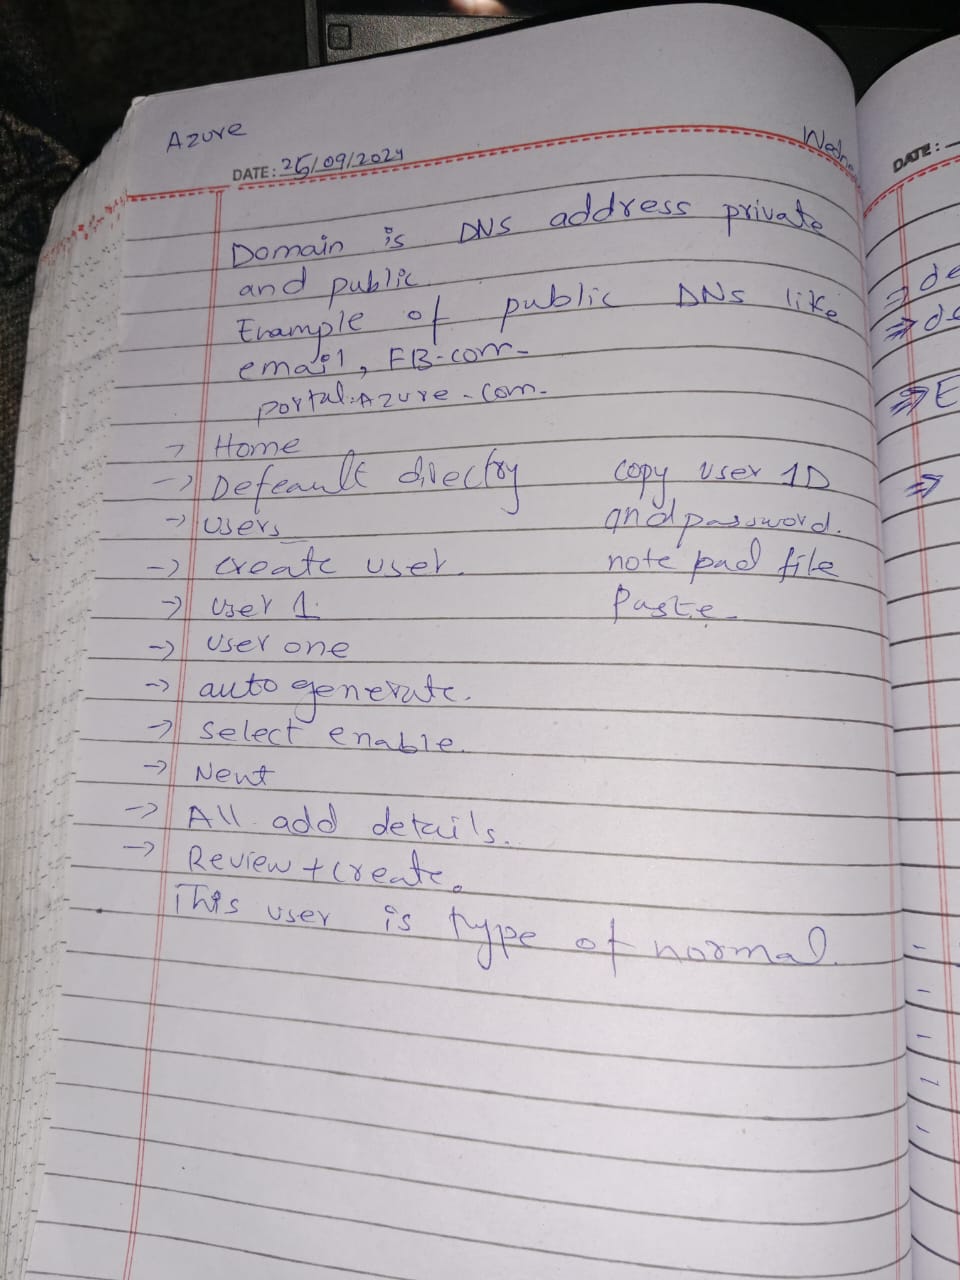 Azure
DATE: 25/09/2024
DATE:
Domain is DNS address private
and public.
Example of public DNS like
email, FB.com.
portal.Azure.com.
→ Home
→ Defeault directry
→ Users
→ create user.
→ User 1.
→ User one
→ auto generate.
→ Select enable.
→ Next
→ All add details.
→ Review + create.
This user is type of normal.
copy user ID
and password.
note pad file
Paste